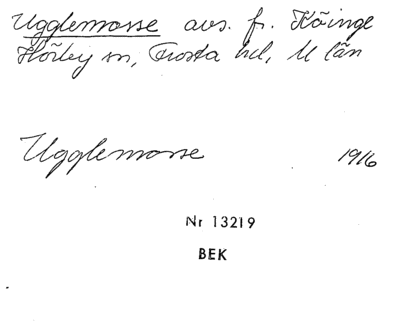 Ugglemosse avs. fr. Köinge
Hörby sn, Frosta hd, M län
Ugglemosse 1916
Nr 13219
BEK